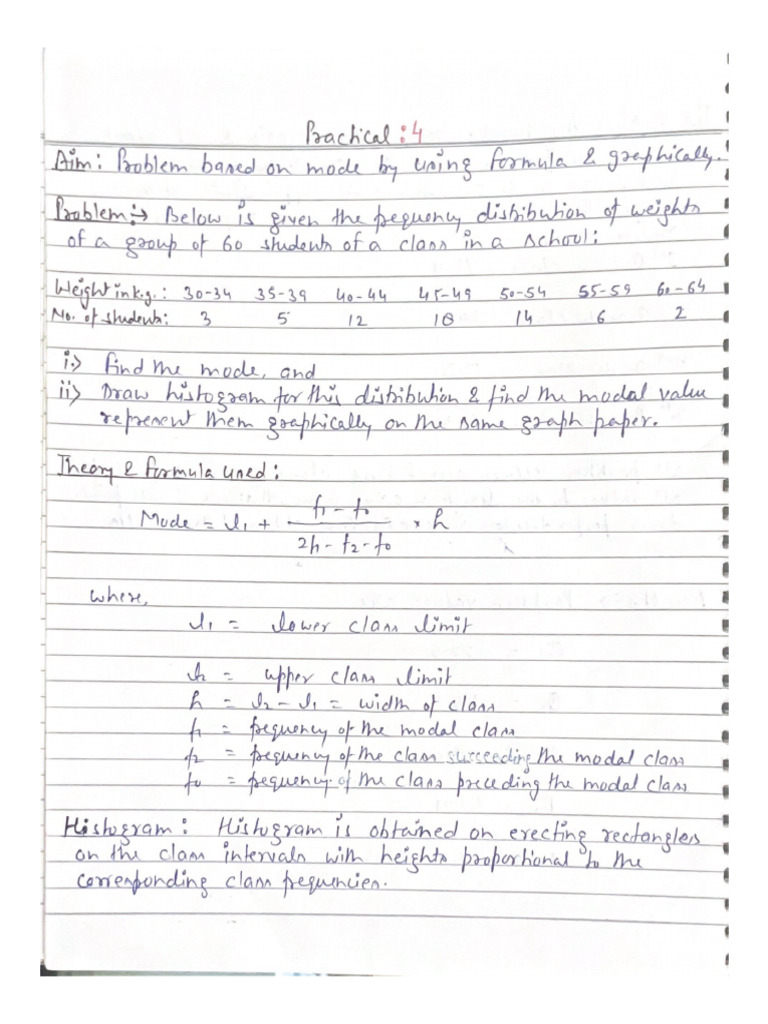 Practical: 4
Aim: Problem based on mode by using formula & graphically.
Problem:→ Below is given the frequency distribution of weights
of a group of 60 students of a class in a school:
Weight in k.g.: 30-34 35-39 40-44 45-49 50-54 55-59 60-64
No. of students: 3 5 12 18 14 6 2
i.> find the mode, and
ii> Draw histogram for this distribution & find the modal value
represent them graphically on the same graph paper.
Theory & formula used:
Mode = l₁ + (f₁ - f₀) / (2f₁ - f₂ - f₀) × h
where,
l₁ = lower class limit
l₂ = upper class limit
h = l₂ - l₁ = width of class
f₁ = frequency of the modal class
f₂ = frequency of the class succeeding the modal class
f₀ = frequency of the class preceding the modal class
Histogram: Histogram is obtained on erecting rectangles
on the class intervals with heights proportional to the
corresponding class frequencies.